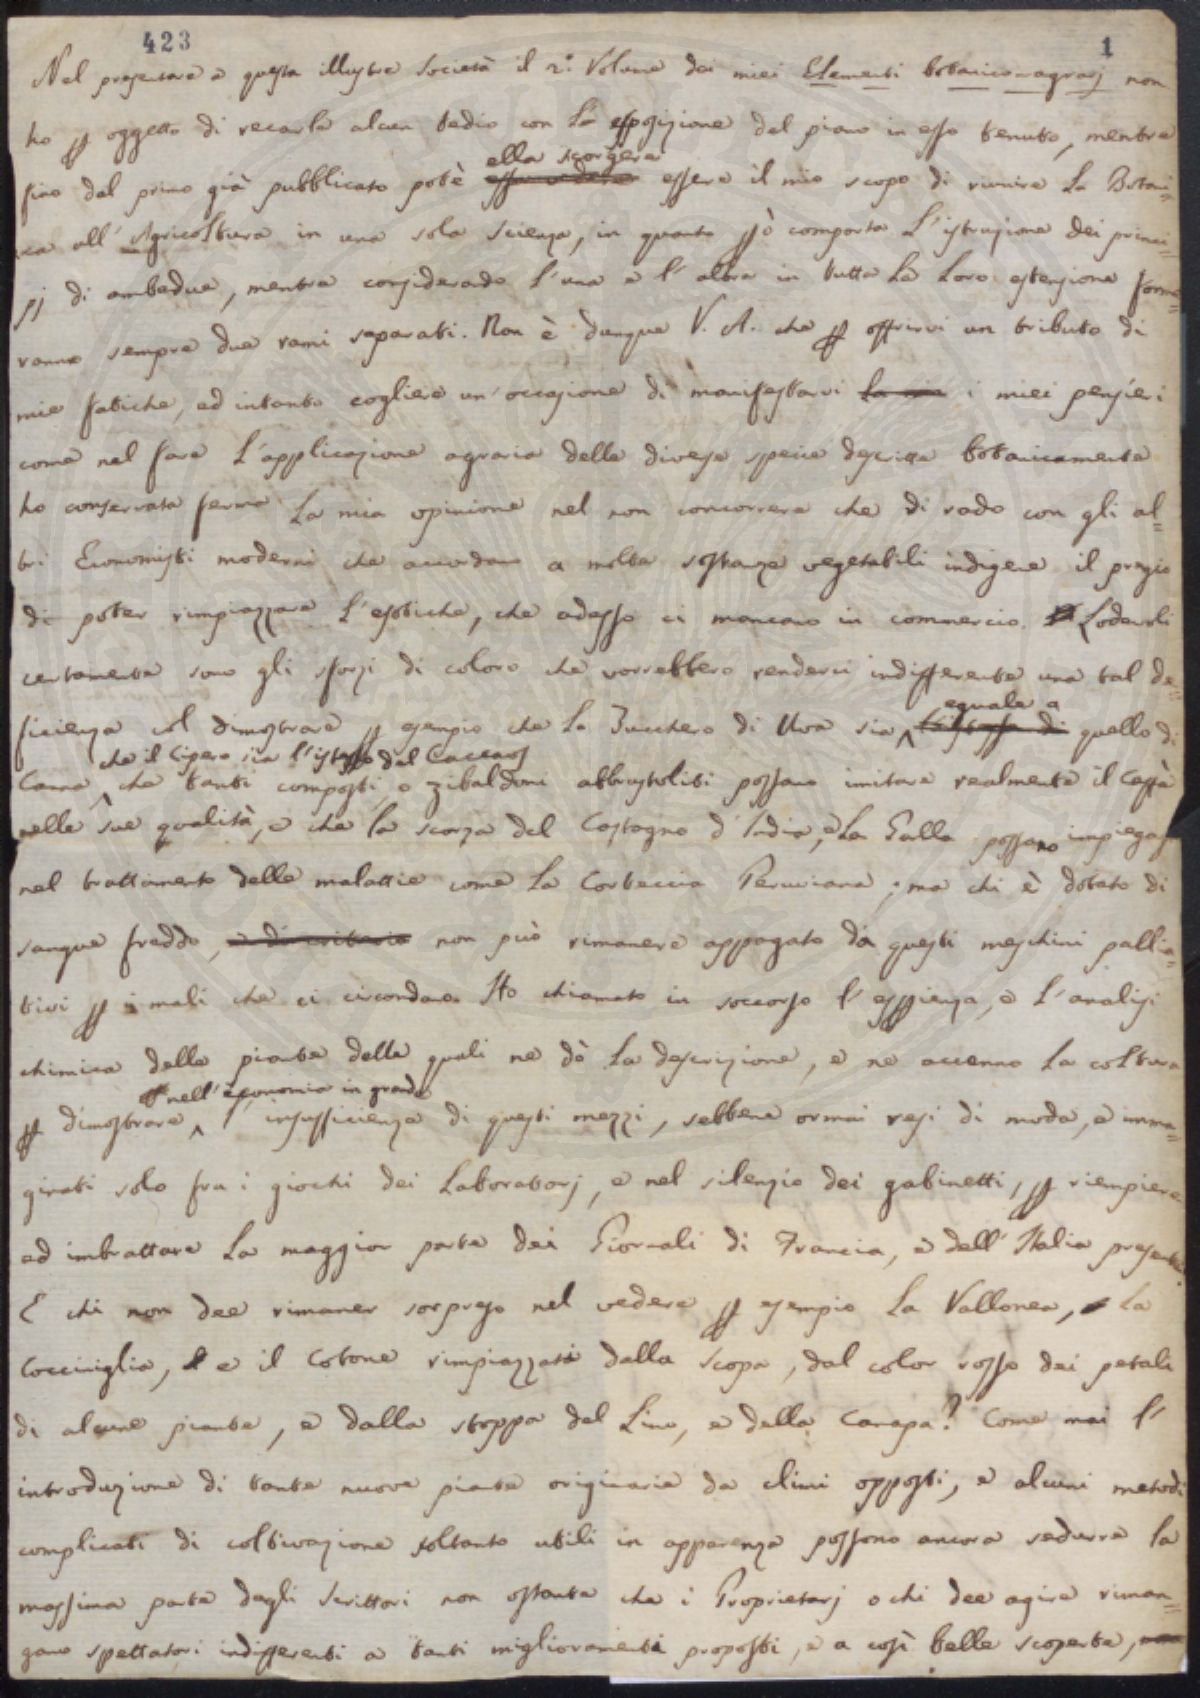 423
1
Nel presentare a questa illustre Società il 2.° Volume dei miei Elementi botanico-agrarj non
ho p oggetto di recarle alcun tedio con la esposizione del piano in esso tenuto, mentre
fino dal primo già pubblicato potè ella scorgere essere il mio scopo di riunire la Botani=
ca all'Agricoltura in una sola Scienza, in quanto può comporta l'istruzione dei princi=
pj di ambedue, mentre considerando l'una e l'altra in tutta la loro estensione forme=
ranno sempre due rami separati. Non è dunque V. A. che p offrirvi un tributo di
mie fatiche, ed intanto cogliere un'occasione di manifestarvi i miei pensieri
come nel fare l'applicazione agraria delle diverse specie descritte botanicamente
ho conservata ferma la mia opinione nel non concorrere che di rado con gli al=
tri Economisti moderni che accordano a molte sostanze vegetabili indigene il pregio
di poter rimpiazzare l'esotiche, che adesso ci mancano in commercio. Lodevoli
certamente sono gli sforzi di coloro che vorrebbero renderci indifferente una tal de=
ficienza col dimostrare p esempio che lo Zucchero di Uva sia eguale a quello di
Canna, che il Cipero sia l'istesso del Caccaos che tanti composti, o zibaldoni abbrustoliti possano imitare realmente il Caffè
nelle sue qualità, e che la scorza del Castagno d'India, e la Galla possano impiegarsi
nel trattamento delle malattie come la Corteccia Peruviana; ma chi è dotato di
sangue freddo, non può rimanere appagato da questi meschini pallia=
tivi p i mali che ci circondano. Ho chiamato in soccorso l'esperienza, e l'analisi
chimica delle piante delle quali ne dò la descrizione, e ne accenno la coltura
p dimostrare nell'economia in grande l'insufficienza di questi mezzi, sebbene ormai resi di moda, e imma=
ginati solo fra i giochi dei Laboratorj, e nel silenzio dei gabinetti, p riempiere
ad imbrattare la maggior parte dei Giornali di Francia, e dell'Italia presente.
E chi non dee rimaner sorpreso nel vedere p esempio la Vallonea, la
Cocciniglia, e il Cotone rimpiazzati dalla scopa, dal color rosso dei petali
di alcune piante, e dalla stoppa del Lino, e della Canapa? Come mai l'
introduzione di tante nuove piante originarie da climi opposti, e alcuni metodi
complicati di coltivazione soltanto utili in apparenza possono ancora sedurre la
massima parte degli Scrittori non ostante che i Proprietarj o chi dee agire riman=
gano spettatori indifferenti a tanti miglioramenti proposti, e a così belle scoperte,